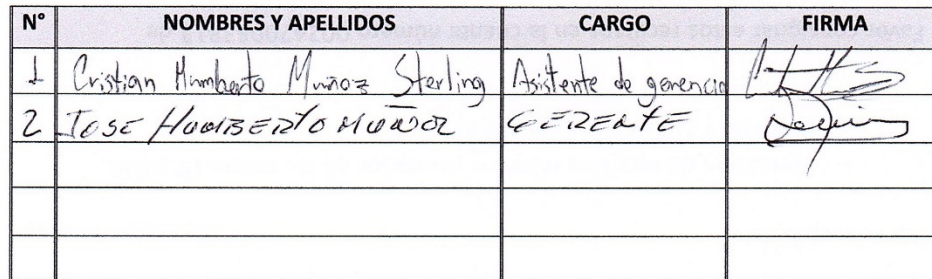 N° NOMBRES Y APELLIDOS CARGO FIRMA
1 Cristian Humberto Muñoz Sterling Asistente de gerencia
2 JOSE HUMBERTO MUÑOZ GERENTE